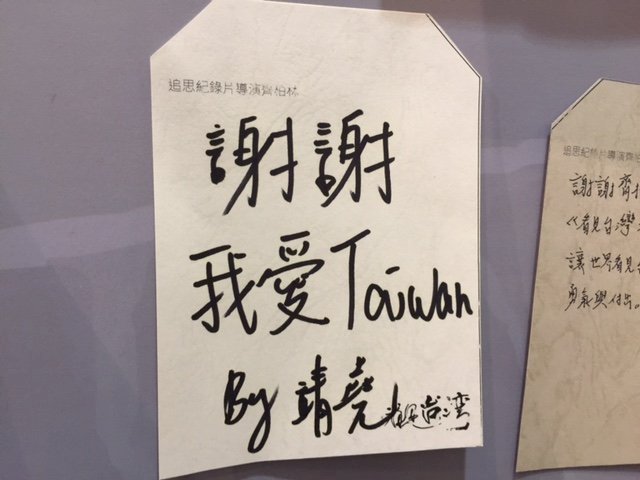 追思紀錄片導演齊柏林
謝謝
我愛Taiwan
By 靖堯
看見台灣
追思紀錄片導演齊
謝謝 齊
看見台灣
讓世界看見
勇氣與付出。